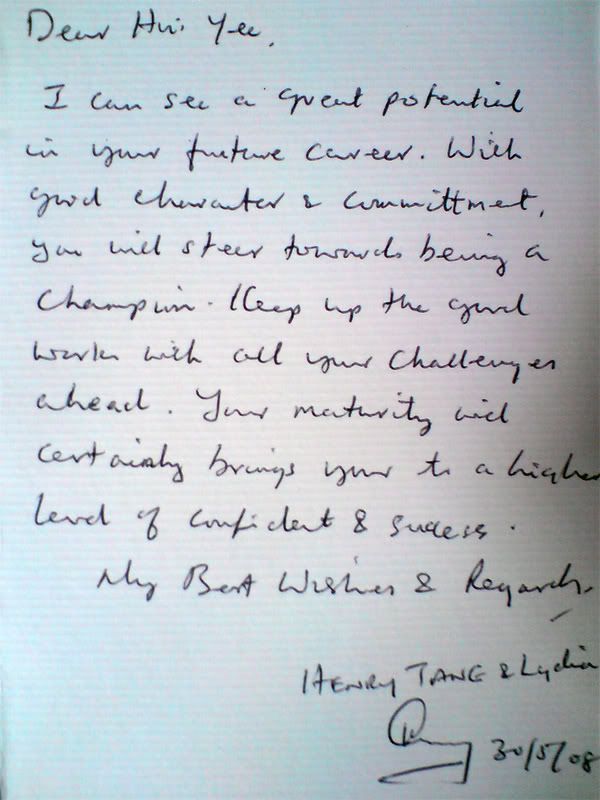 Dear Hui Yee,
I can see a great potential
in your future career. With
good character & committment,
you will steer towards being a
Champion. Keep up the good
works with all your challenges
ahead. Your maturity will
certainly brings your to a higher
level of confident & success.
My Best Wishes & Regards.
HENRY TANG & Lydia
30/5/08